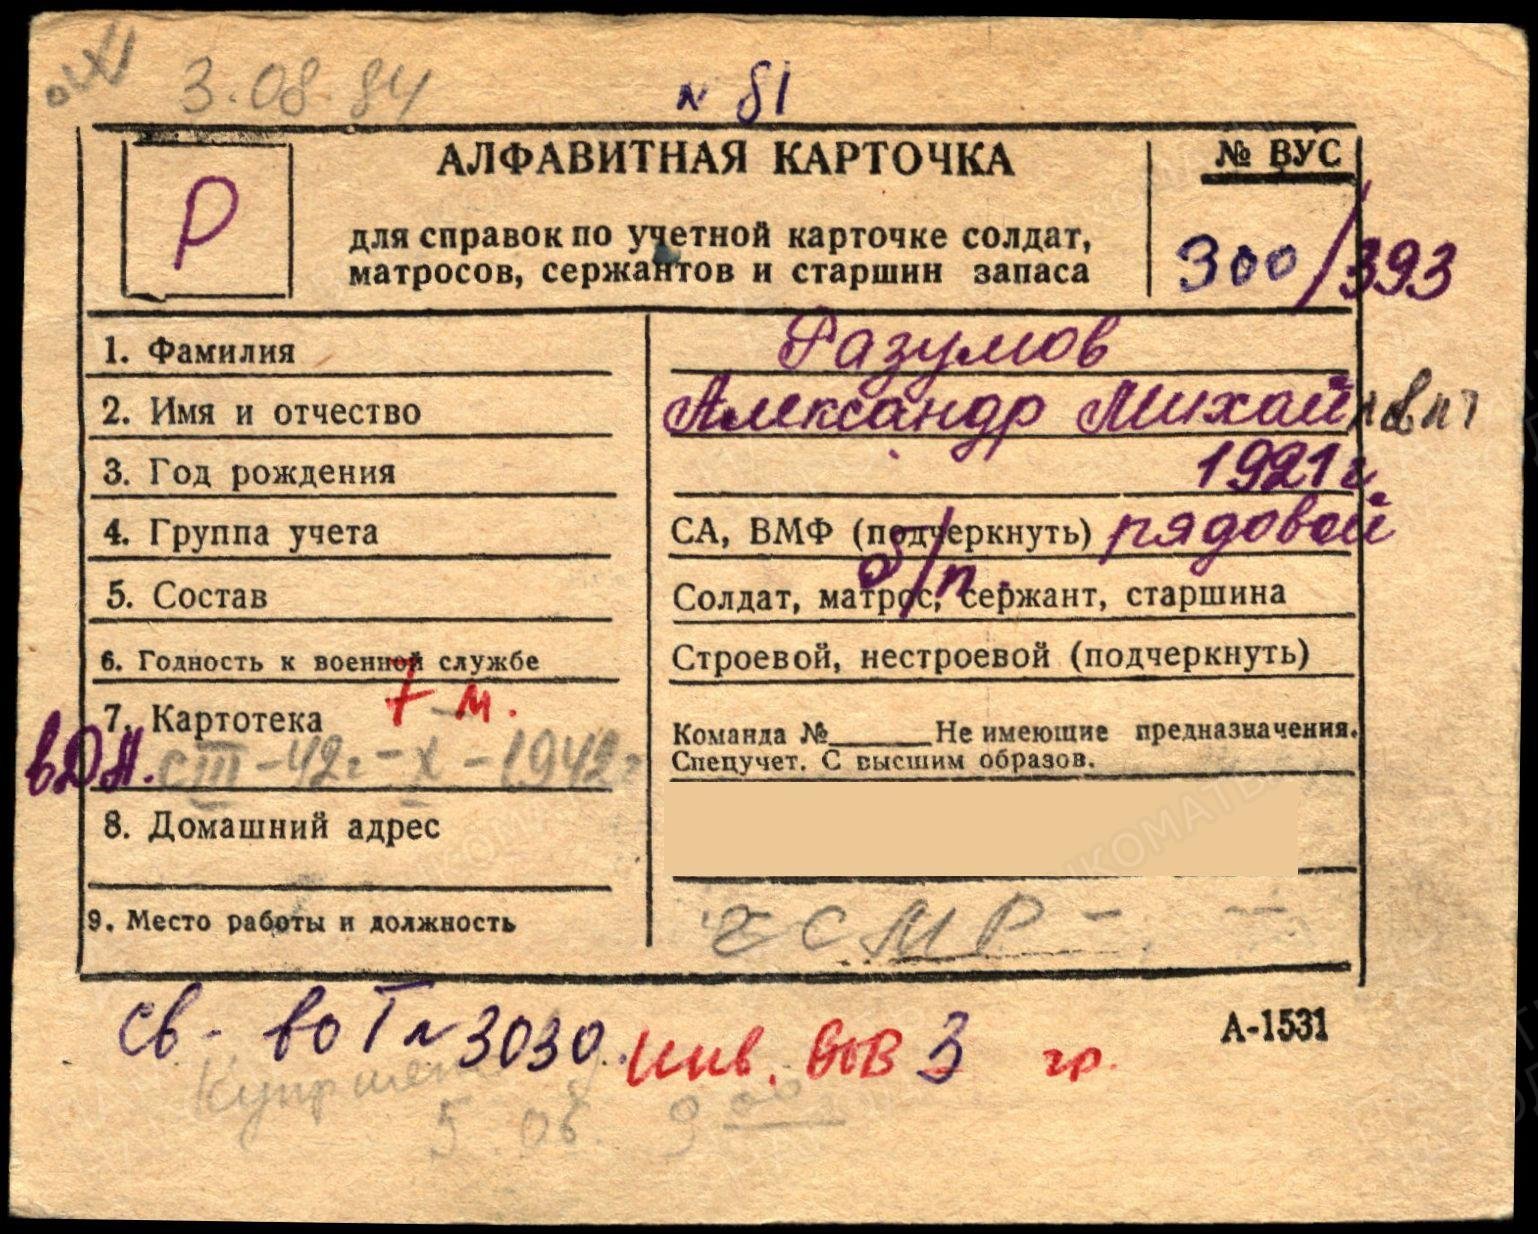 3.08.84
№ 81
Р
АЛФАВИТНАЯ КАРТОЧКА
для справок по учетной карточке солдат,
матросов, сержантов и старшин запаса
№ ВУС
300/393
1. Фамилия
Разумов
2. Имя и отчество
Александр Михайлович
3. Год рождения
1921 г.
4. Группа учета
СА, ВМФ (подчеркнуть) рядовой
б/п.
5. Состав
Солдат, матрос, сержант, старшина
6. Годность к военной службе
Строевой, нестроевой (подчеркнуть)
7 м.
7. Картотека
Команда № Не имеющие предназначения.
Спецучет. С высшим образов.
вДА. с III-42г-X-1942г
8. Домашний адрес
9. Место работы и должность
СМР
св-во I № 3030. инв. ВОВ 3 гр.
А-1531
5.06. 9 00